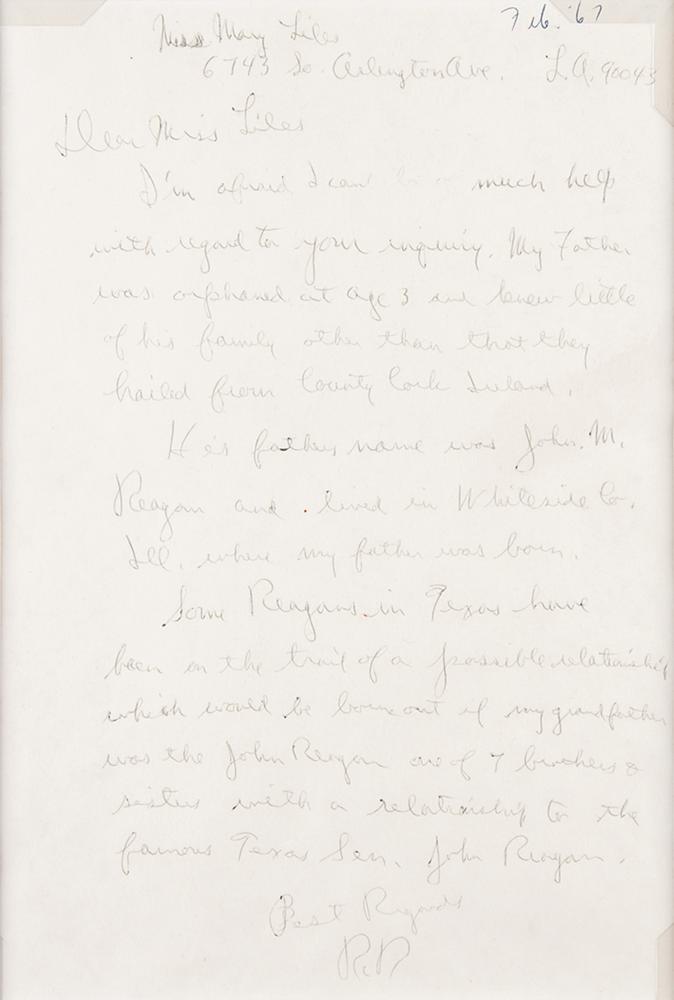 Feb. '67
Miss Mary Liles
6743 So. Arlington Ave. L.A. 90043
Dear Miss Liles
I'm afraid I can be of much help
with regard to your inquiry. My Father
was orphaned at age 3 and knew little
of his family other than that they
hailed from County Cork Ireland.
His fathers name was John. M.
Reagan and lived in Whiteside Co.
Ill. where my father was born.
Some Reagans in Texas have
been on the trail of a possible relationship
which would be borne out if my grandfather
was the John Reagan one of 7 brothers &
sisters with a relationship to the
famous Texas Sen. John Reagan.
Best Regards
RR